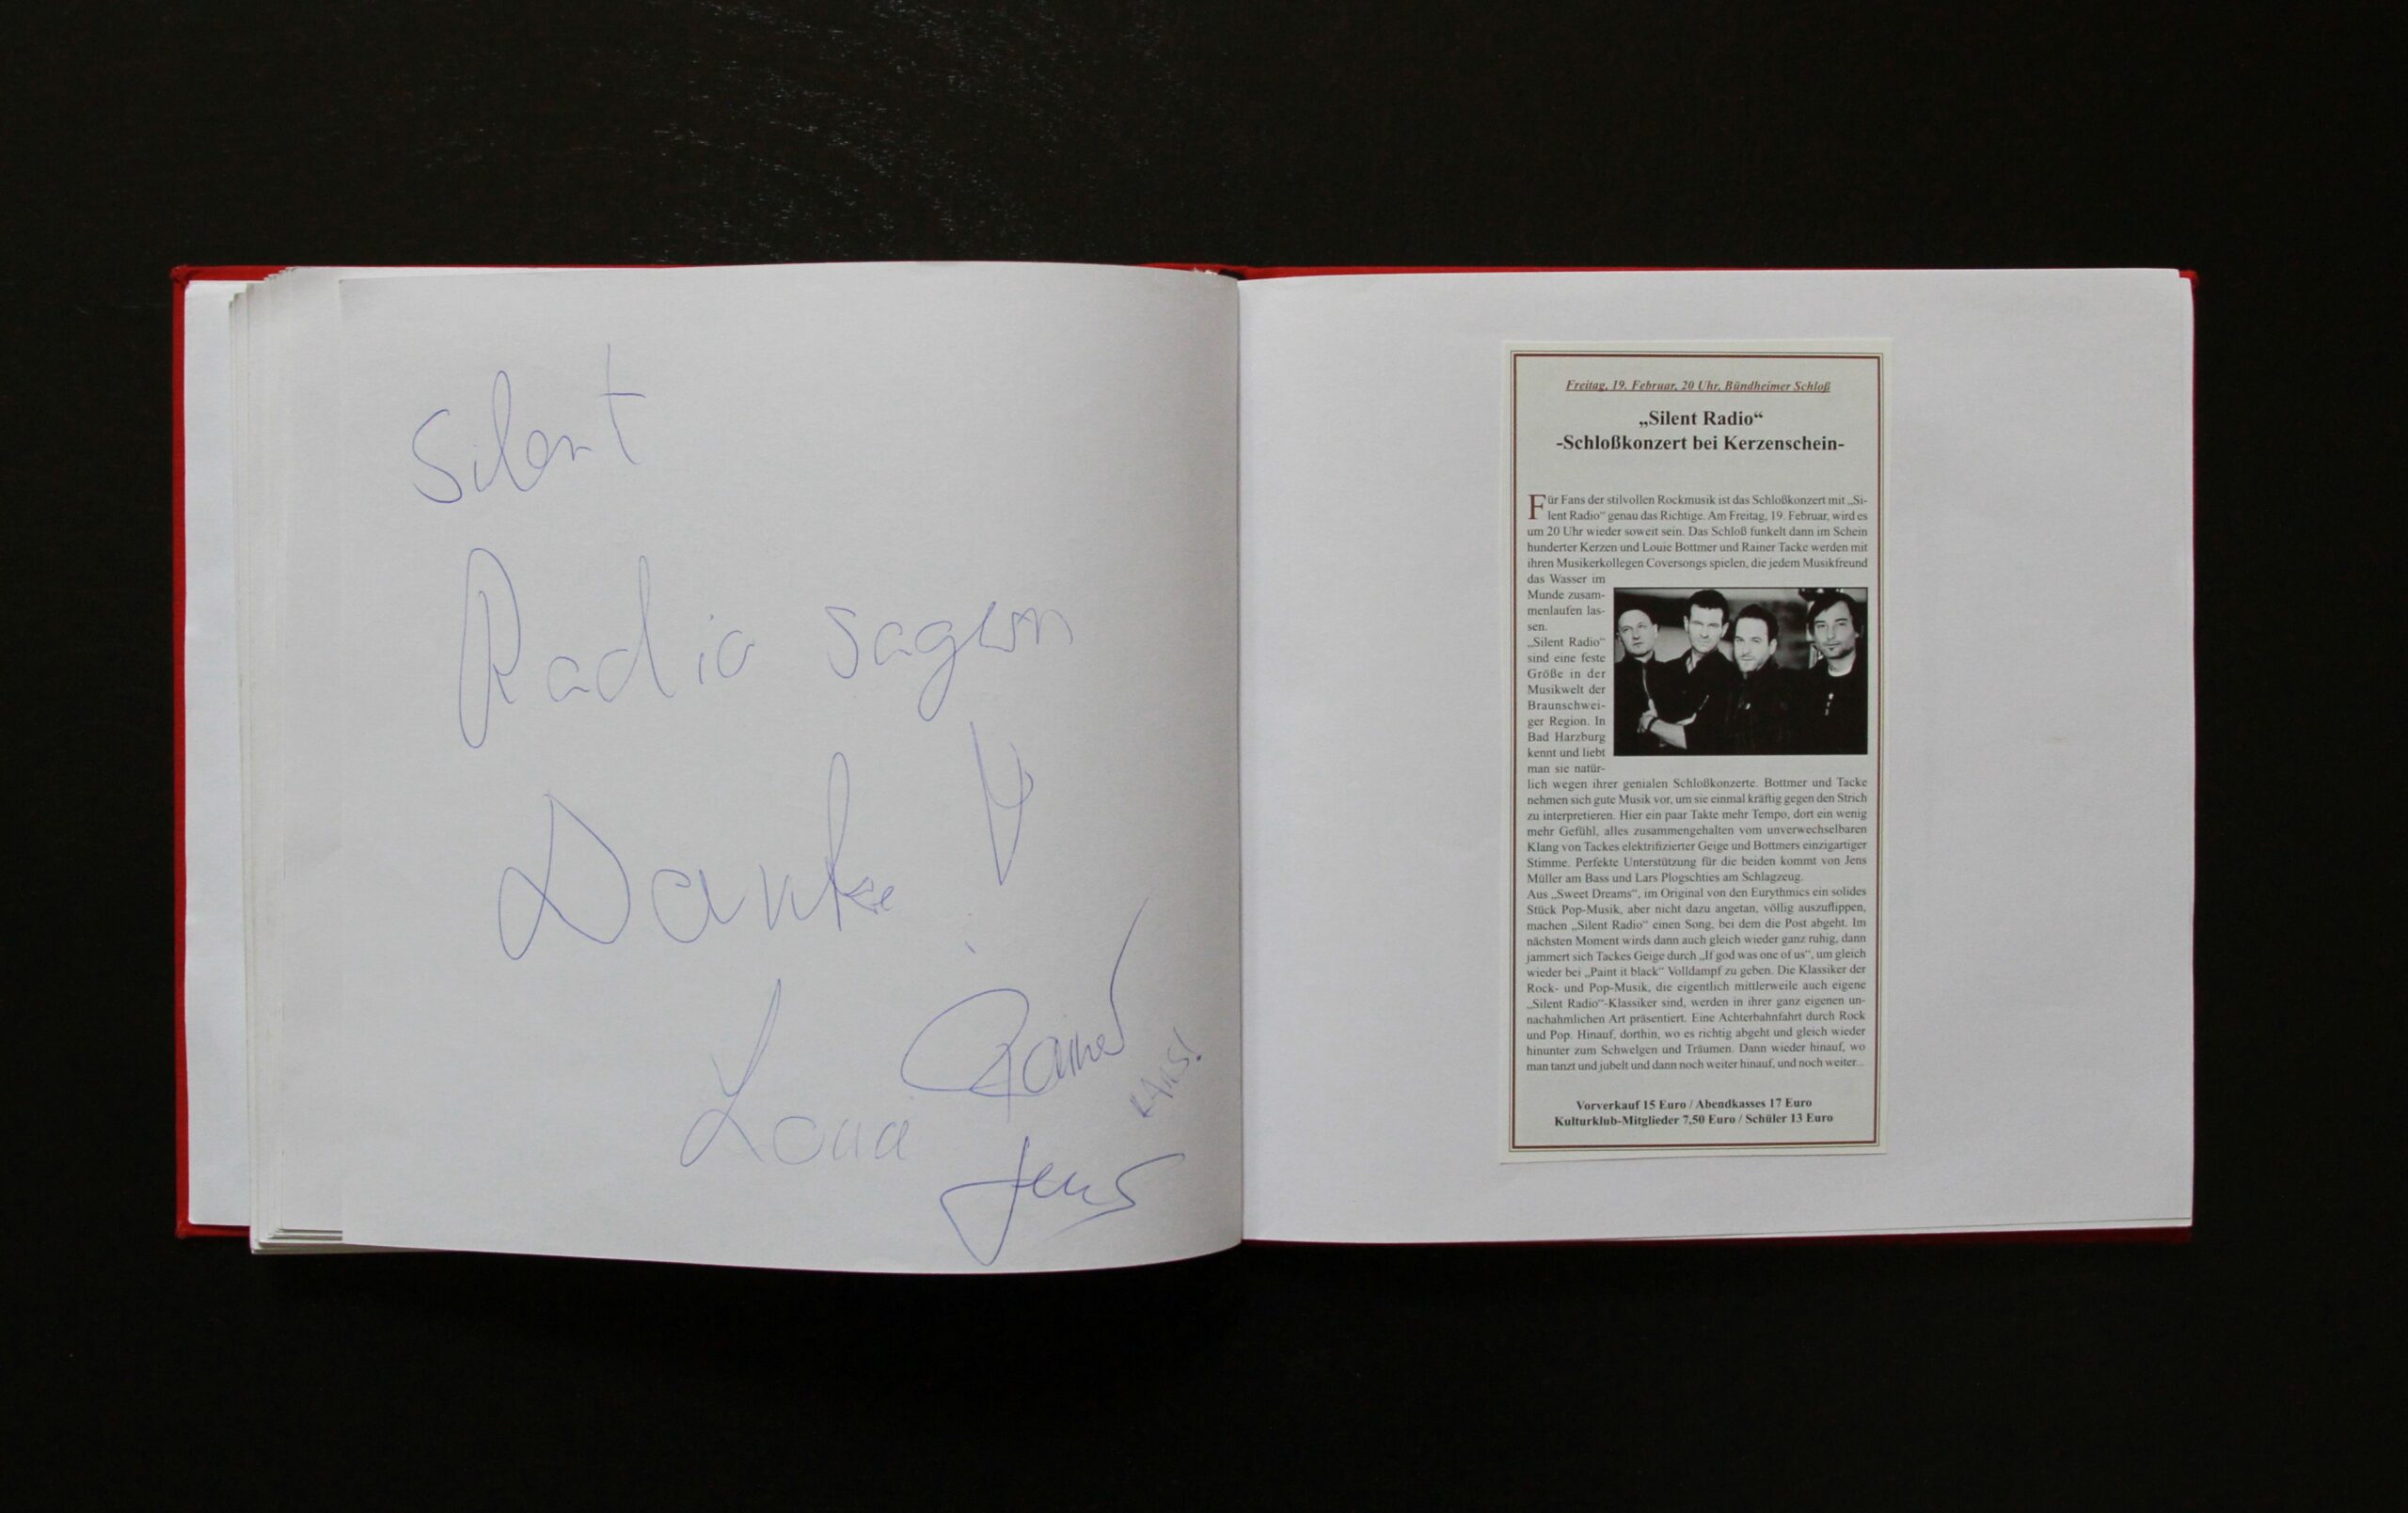 Silent
Radio sagen
Danke!
Rainer
Lars!
Loui
Jens
Freitag, 19. Februar, 20 Uhr, Bündheimer Schloß
„Silent Radio“
-Schloßkonzert bei Kerzenschein-
Für Fans der stilvollen Rockmusik ist das Schloßkonzert mit „Si-
lent Radio“ genau das Richtige. Am Freitag, 19. Februar, wird es
um 20 Uhr wieder soweit sein. Das Schloß funkelt dann im Schein
hunderter Kerzen und Louie Bottmer und Rainer Tacke werden mit
ihren Musikerkollegen Coversongs spielen, die jedem Musikfreund
das Wasser im
Munde zusam-
menlaufen las-
sen.
„Silent Radio“
sind eine feste
Größe in der
Musikwelt der
Braunschwei-
ger Region. In
Bad Harzburg
kennt und liebt
man sie natür-
lich wegen ihrer genialen Schloßkonzerte. Bottmer und Tacke
nehmen sich gute Musik vor, um sie einmal kräftig gegen den Strich
zu interpretieren. Hier ein paar Takte mehr Tempo, dort ein wenig
mehr Gefühl, alles zusammengehalten vom unverwechselbaren
Klang von Tackes elektrifizierter Geige und Bottmers einzigartiger
Stimme. Perfekte Unterstützung für die beiden kommt von Jens
Müller am Bass und Lars Plogschties am Schlagzeug.
Aus „Sweet Dreams“, im Original von den Eurythmics ein solides
Stück Pop-Musik, aber nicht dazu angetan, völlig auszuflippen,
machen „Silent Radio“ einen Song, bei dem die Post abgeht. Im
nächsten Moment wirds dann auch gleich wieder ganz ruhig, dann
jammert sich Tackes Geige durch „If god was one of us“, um gleich
wieder bei „Paint it black“ Volldampf zu geben. Die Klassiker der
Rock- und Pop-Musik, die eigentlich mittlerweile auch eigene
„Silent Radio“-Klassiker sind, werden in ihrer ganz eigenen un-
nachahmlichen Art präsentiert. Eine Achterbahnfahrt durch Rock
und Pop. Hinauf, dorthin, wo es richtig abgeht und gleich wieder
hinunter zum Schwelgen und Träumen. Dann wieder hinauf, wo
man tanzt und jubelt und dann noch weiter hinauf, und noch weiter...
Vorverkauf 15 Euro / Abendkasses 17 Euro
Kulturklub-Mitglieder 7,50 Euro / Schüler 13 Euro